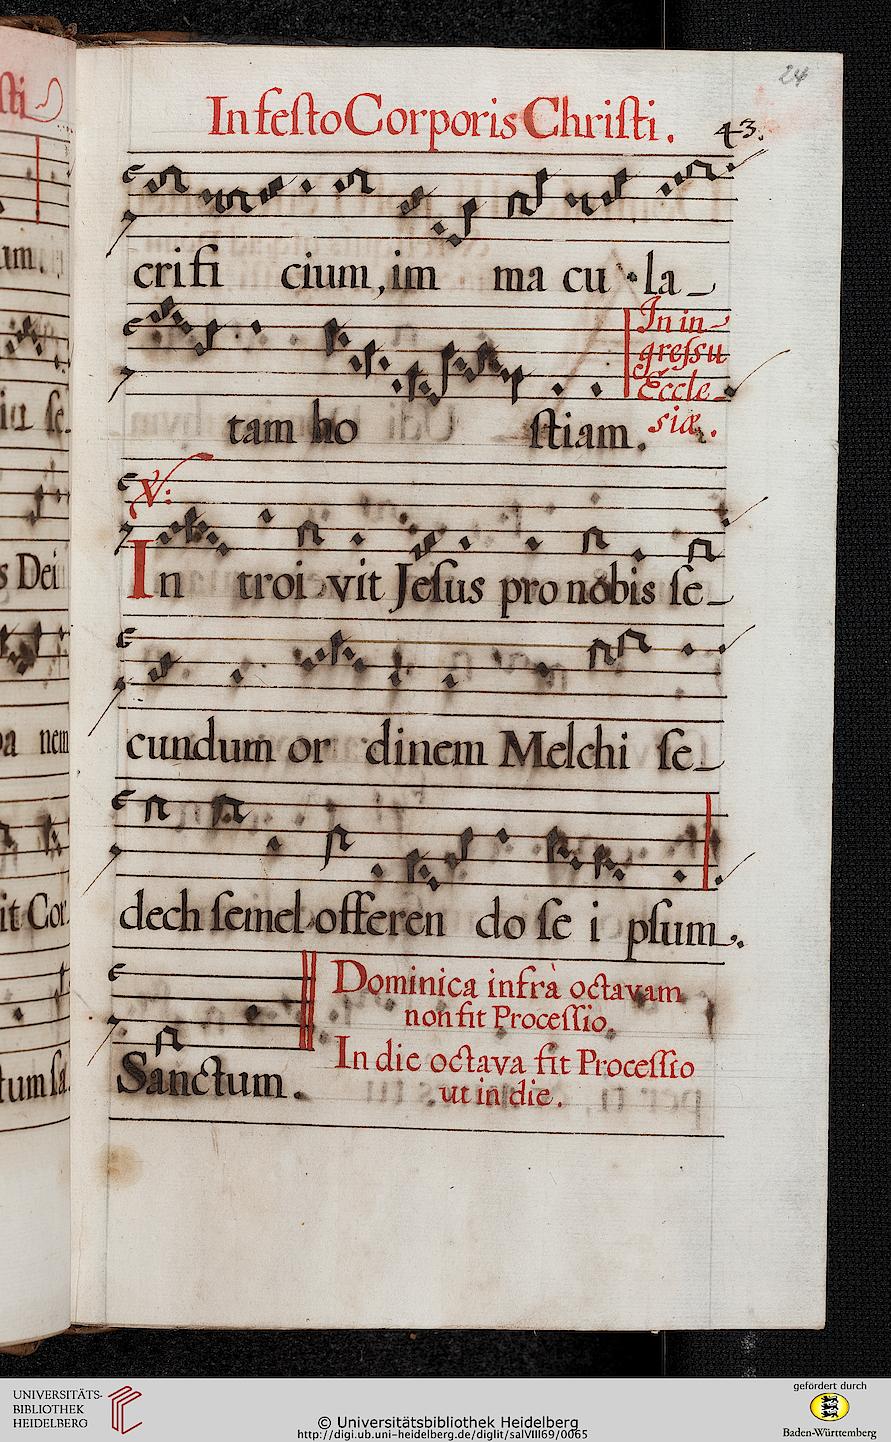 24
In festo Corporis Christi. 43.
crifi cium, im ma cu la_
In in-
gressu
Eccle_
siæ.
tam ho stiam.
V:
In troi vit Jesus pro nobis se_
cundum or dinem Melchi se_
dech semel offeren do se i psum.
Dominica infrà octavam
non fit Processio.
In die octava fit Processio
ut in die.
Sanctum.
UNIVERSITÄTS-
BIBLIOTHEK
HEIDELBERG
© Universitätsbibliothek Heidelberg
http://digi.ub.uni-heidelberg.de/diglit/salVIII69/0065
gefördert durch
Baden-Württemberg